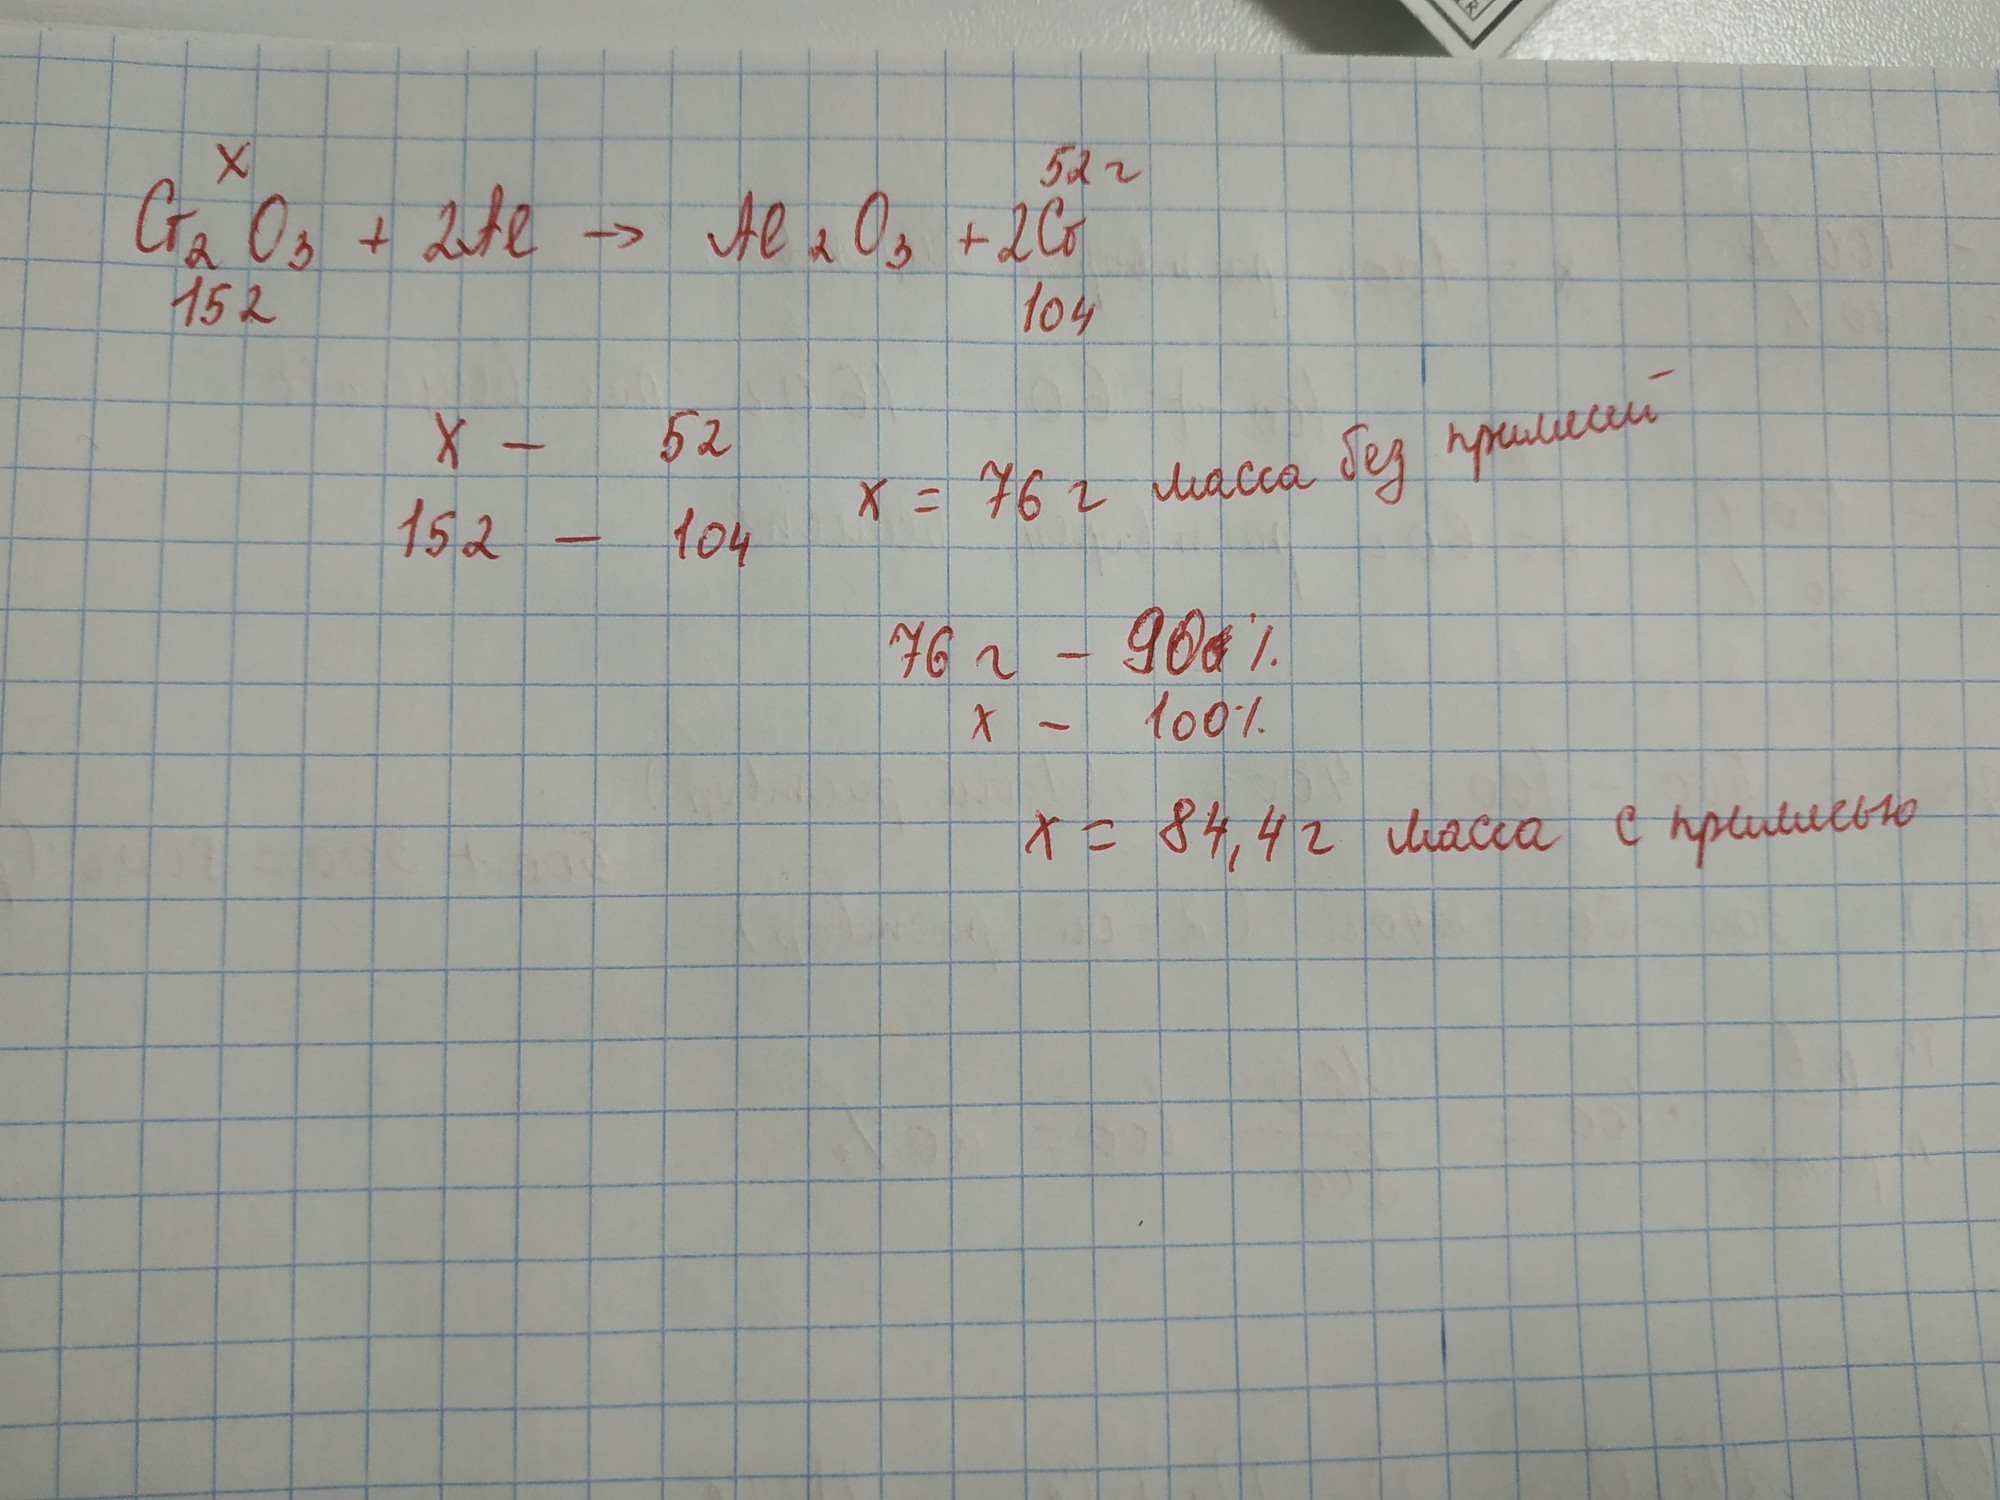 x 52 г
Cr2O3 + 2Al → Al2O3 + 2Cr
152 104
x – 52
152 – 104
x = 76 г масса без примесей
76 г – 90%
x – 100%
x = 84,4 г масса с примесью